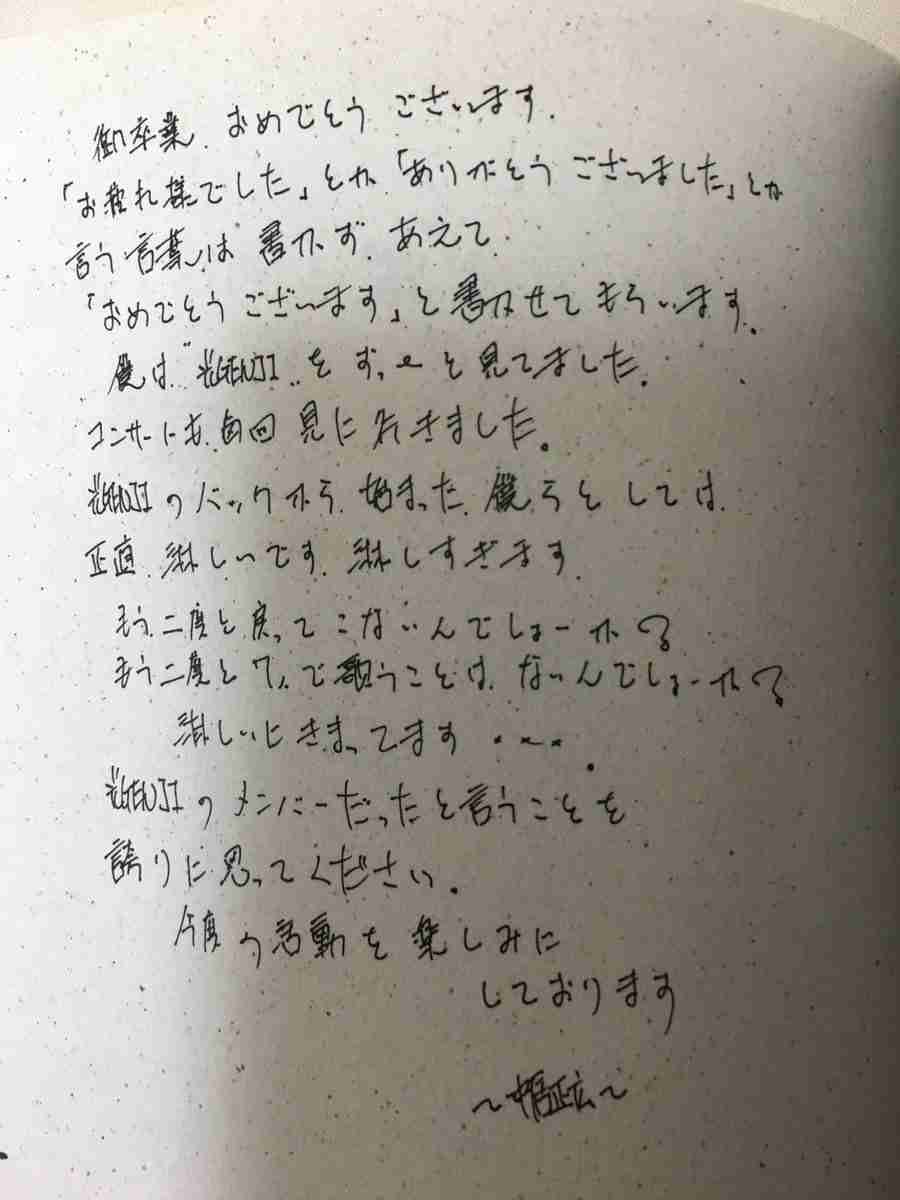 御卒業、おめでとうございます。
「お疲れ様でした」とか「ありがとうございました」とか
言う言葉は書かず、あえて
「おめでとうございます」と書かせてもらいます。
僕は、"光GENJI"をずっーと見てました。
コンサートも、毎回見に行きました。
光GENJIのバックから、始まった、僕らとしては、
正直、淋しいです、淋しすぎます
もう、二度と戻ってこないんでしょーか?
もう二度と7人で歌うことは、ないんでしょーか?
淋しいにきまってます・・・。
光GENJIのメンバーだったと言うことを
誇りに思ってください。
今度の活動を楽しみに
しております
〜中居正広〜